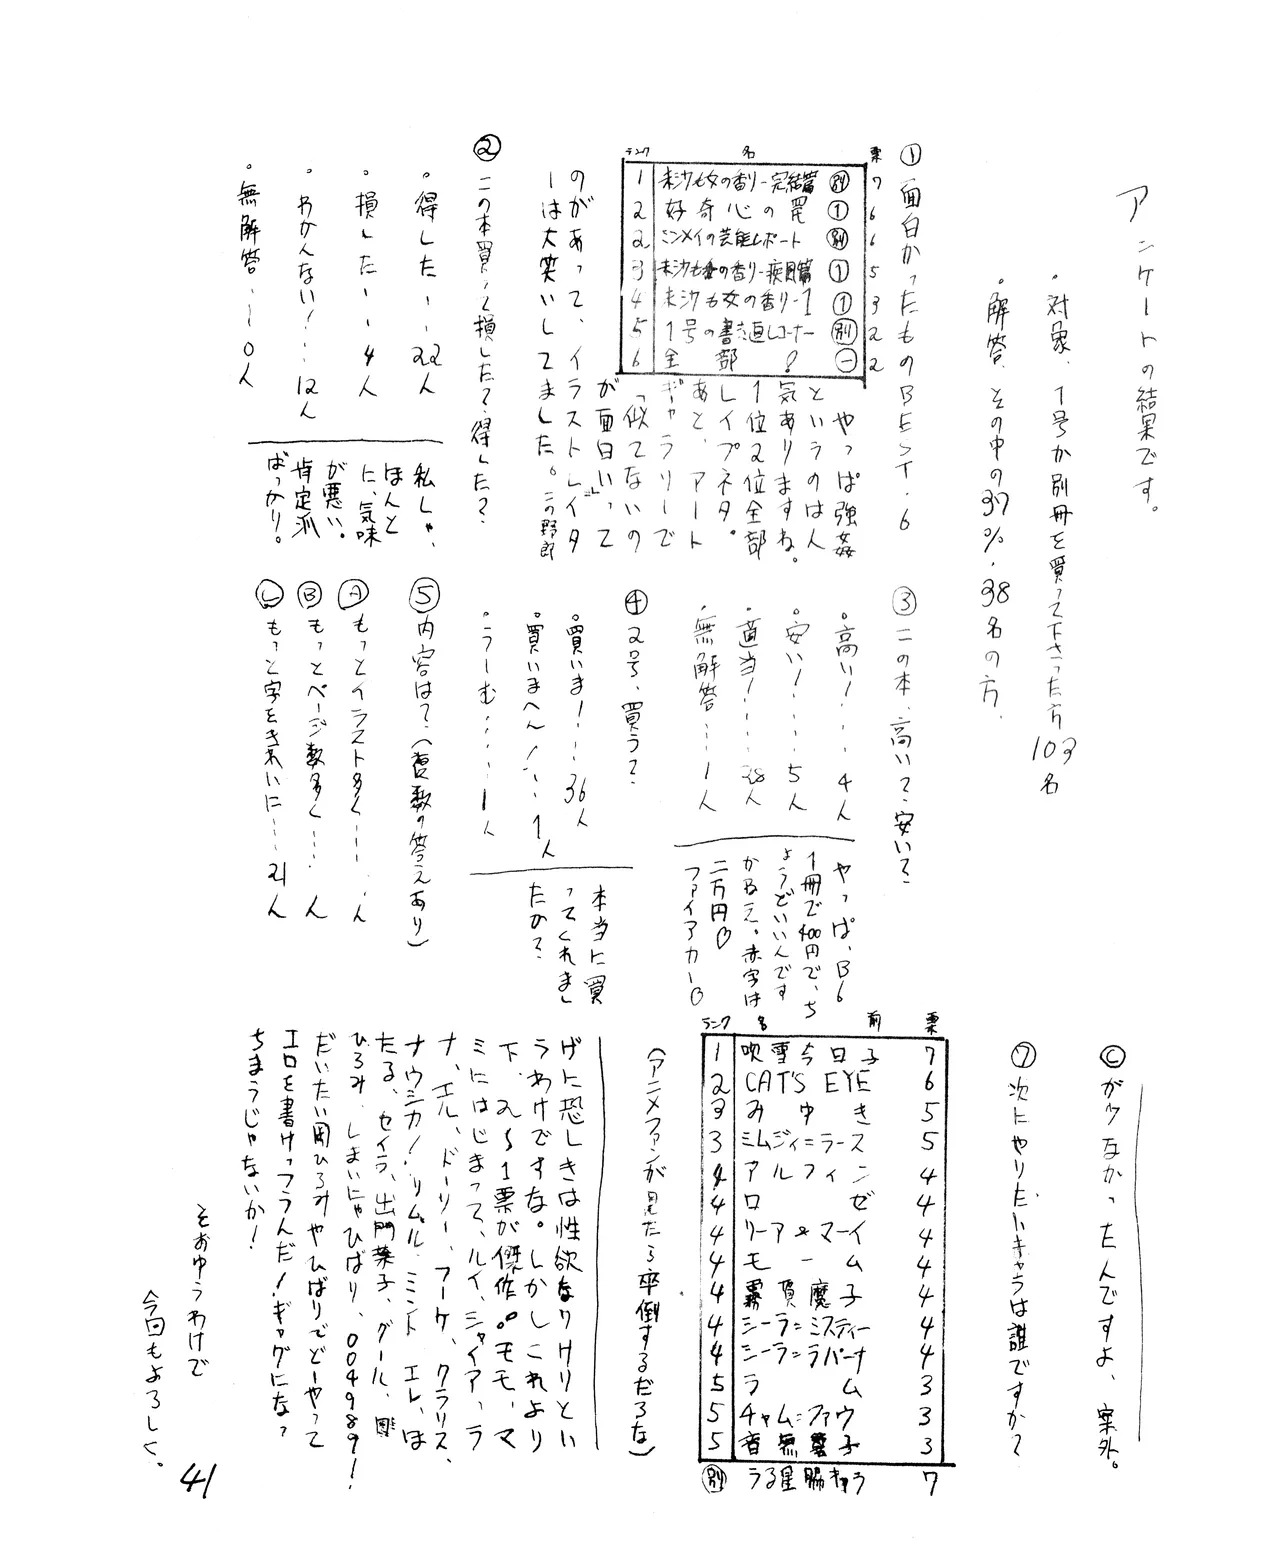 アンケートの結果です。
・対象、1号か別冊を買って下さった方 103名
・解答、その中の37%、38名の方、
① 面白かったものBEST・6
ランク 名 票
1 未沙・女の香り-完結篇 別 7
2 好奇心の罠 ① 6
2 ミンメイの芸能レポート 別 6
3 未沙・女の香り- ① 5
4 未沙・女の香り-1 ① 3
5 1号の書き直しコーナー 別 2
6 全部! 一 2
やっぱ強姦
というのは人
気ありますね。
1位2位全部
レイプネタ。
あと、アート
ギャラリーで
「似てないの
が面白い」って
のがあって、イラストレイタ
ーは大笑いしてました。この野郎
② この本買って損した?得した?
・得した……22人
・損した……4人
・わかんない!……12人
・無解答……0人
私しゃ、
ほんと
に、気味
が悪い。
肯定派
ばっかり。
③ この本、高い?、安い?
・高い!……4人
・安い!……5人
・適当!……28人
・無解答……1人
やっぱ、B6
1冊で400円で、ち
ょうどいいんです
かねえ。赤字は
二万円♡
ファイアカー♡
④ 2号、買う?
・買いま!……36人
・買いまへん!……1人
・うーむ……1人
本当に買
ってくれまし
たか?
⑤ 内容は?(複数の答えあり)
Ⓐ もっとイラスト多く……人
Ⓑ もっとページ数多く……人
Ⓒ もっと字をきれいに……21人
Ⓒがケなかったんですよ、案外。
⑦ 次にやりたいキャラは誰ですか?
ランク 名前 票
1 吹雪今日子 7
2 CAT'S EYE 6
3 みゆき 5
3 ミムジィ=ラース 5
4 アルフィン 4
4 ロゼ 4
4 リーア&マーイ 4
4 モーム 4
4 霧賀魔子 4
4 シーラ=ミスティー 4
4 シーラ=ラパーナ 4
5 ラム 3
5 チャム=ファウ 3
5 音無響子 3
別 うる星脇キャラ 7
(アニメファンが見たら卒倒するだろな)
げに恐しきは性欲なりけりとい
うわけですな。しかしこれより
下、2〜1票が傑作。モモ、マ
ミにはじまって、ルイ、シャイア、ラ
ナ、エル、ドーリー、フーケ、クラリス、
ナウシカ!、リムル、ミント、エレ、ほ
たる、セイラ、出門葉子、グール、
ひろみ、しまいにゃひばり、004989!
だいたい岡ひろみやひばりでどーやって
エロを書けっつうんだ!ギャグになっ
ちまうじゃないか!
そおゆうわけで
今回もよろしく。
41